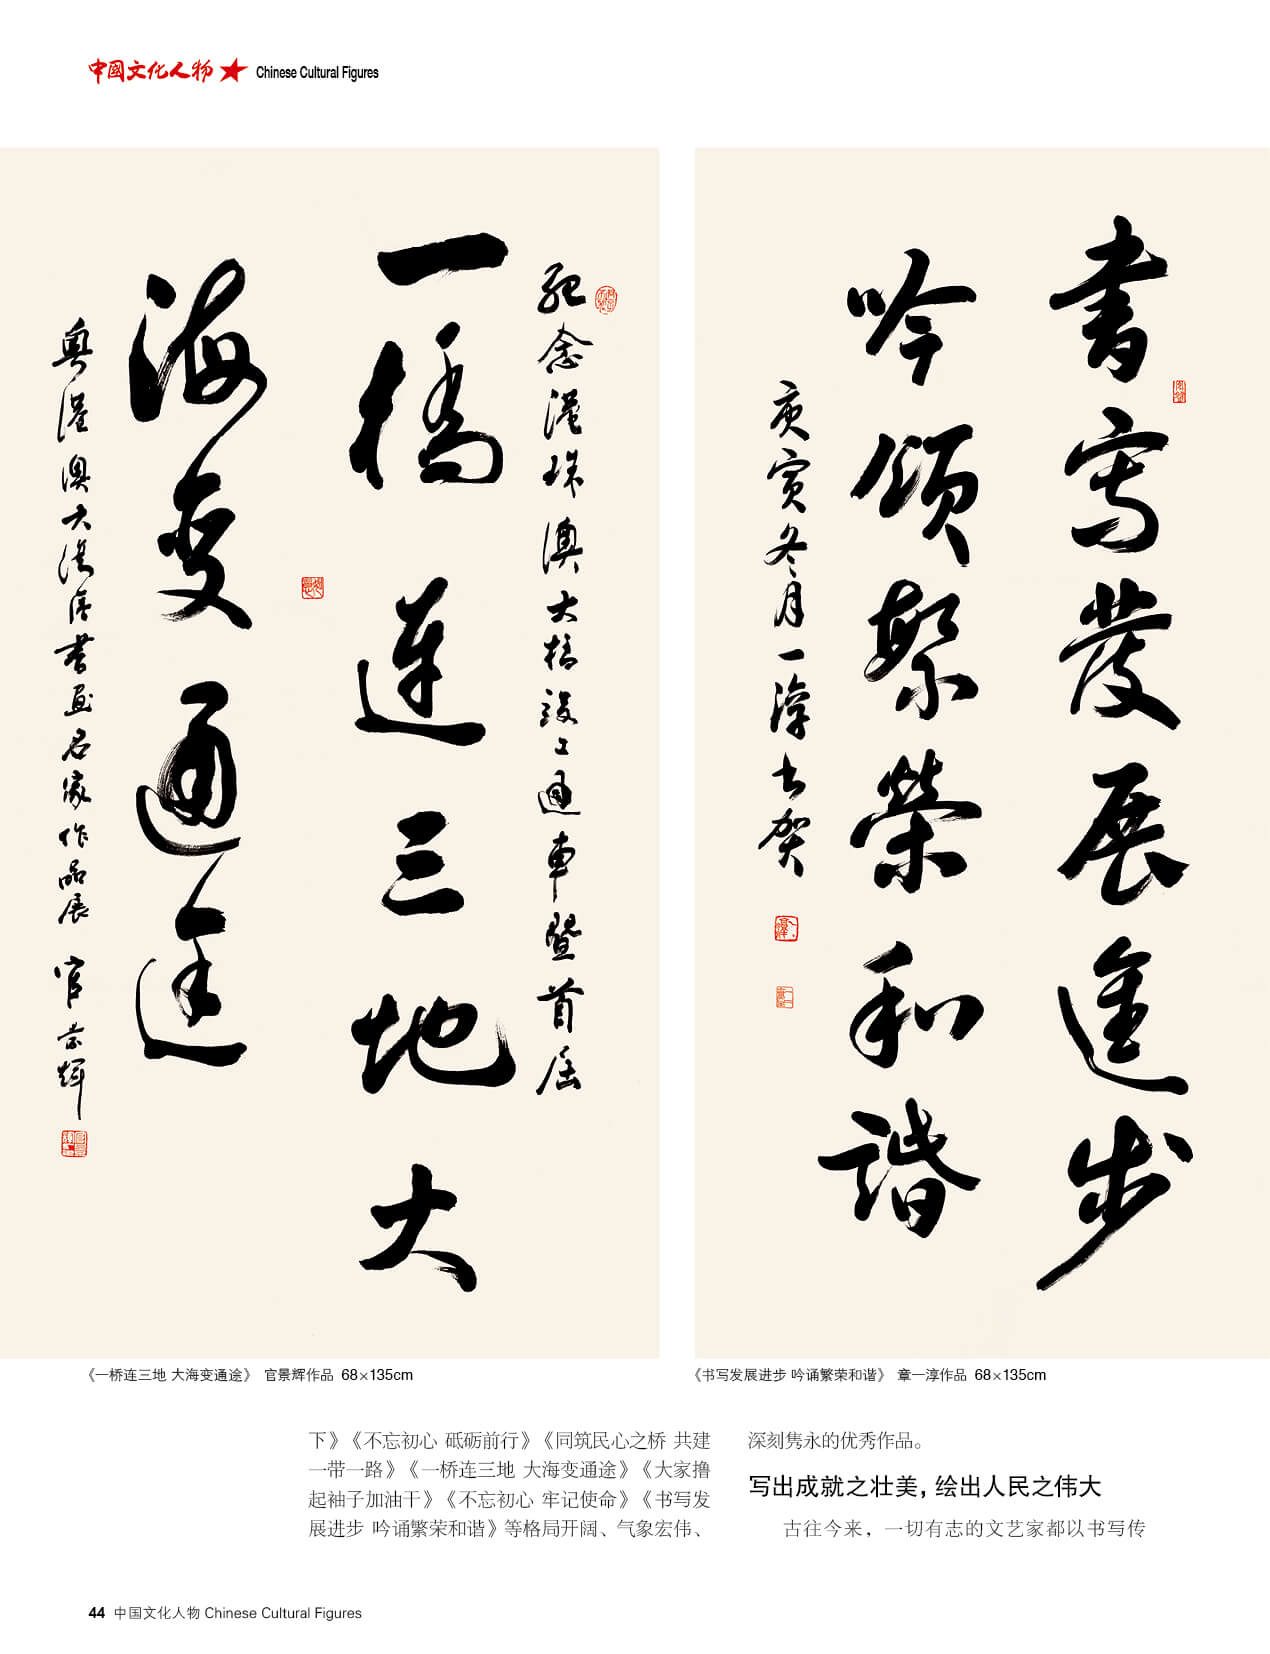 中國文化人物 Chinese Cultural Figures
紀念港珠澳大橋竣工通車暨首屆
一橋連三地大
海變通途
粵港澳大灣區書畫名家作品展 官景輝
書寫發展進步
吟頌繁榮和諧
庚寅冬月一淳书贺
《一桥连三地 大海变通途》 官景辉作品 68×135cm
《书写发展进步 吟诵繁荣和谐》 章一淳作品 68×135cm
下》《不忘初心 砥砺前行》《同筑民心之桥 共建
一带一路》《一桥连三地 大海变通途》《大家撸
起袖子加油干》《不忘初心 牢记使命》《书写发
展进步 吟诵繁荣和谐》等格局开阔、气象宏伟、
深刻隽永的优秀作品。
写出成就之壮美，绘出人民之伟大
古往今来，一切有志的文艺家都以书写传
44 中国文化人物 Chinese Cultural Figures